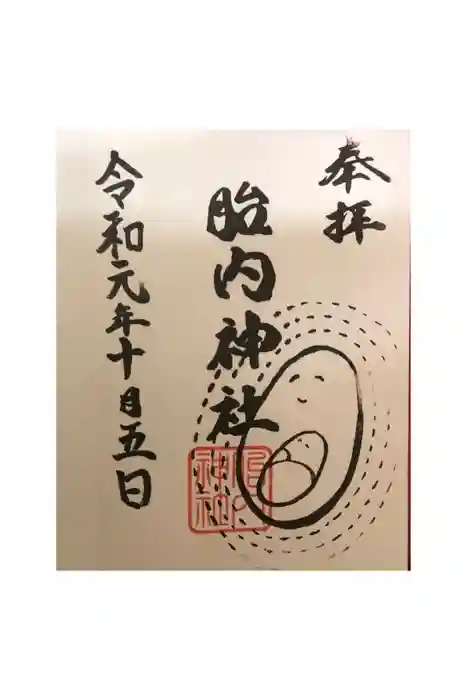 奉拝
胎内神社
令和元年十月五日